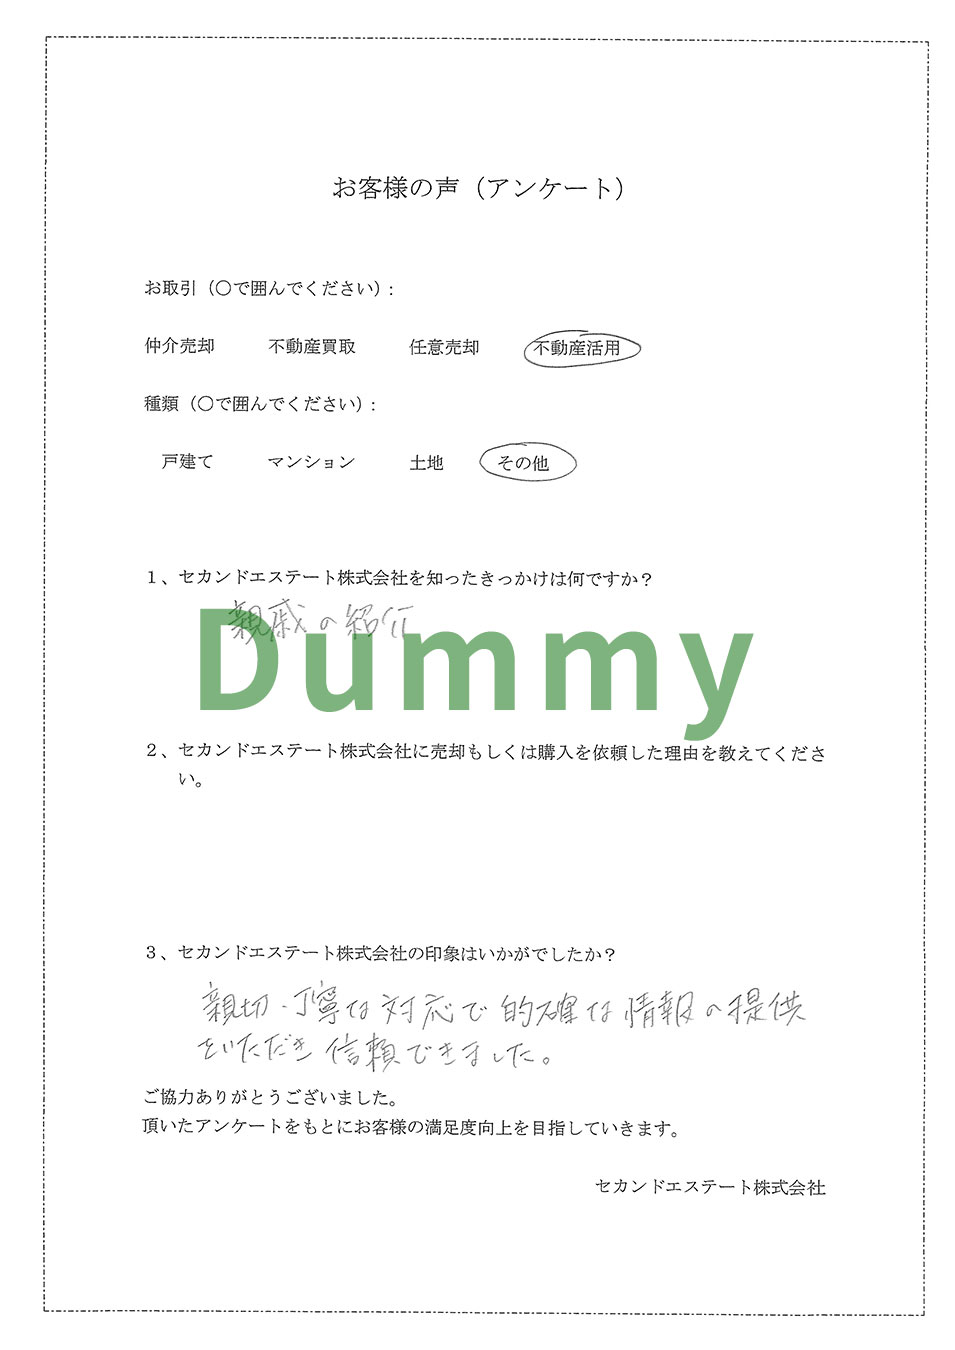 お客様の声（アンケート）
お取引（〇で囲んでください）:
仲介売却 不動産買取 任意売却 不動産活用
種類（〇で囲んでください）:
戸建て マンション 土地 その他
1、セカンドエステート株式会社を知ったきっかけは何ですか？
親戚の紹介
Dummy
2、セカンドエステート株式会社に売却もしくは購入を依頼した理由を教えてくださ
い。
3、セカンドエステート株式会社の印象はいかがでしたか？
親切・丁寧な対応で的確な情報の提供
をいただき信頼できました。
ご協力ありがとうございました。
頂いたアンケートをもとにお客様の満足度向上を目指していきます。
セカンドエステート株式会社